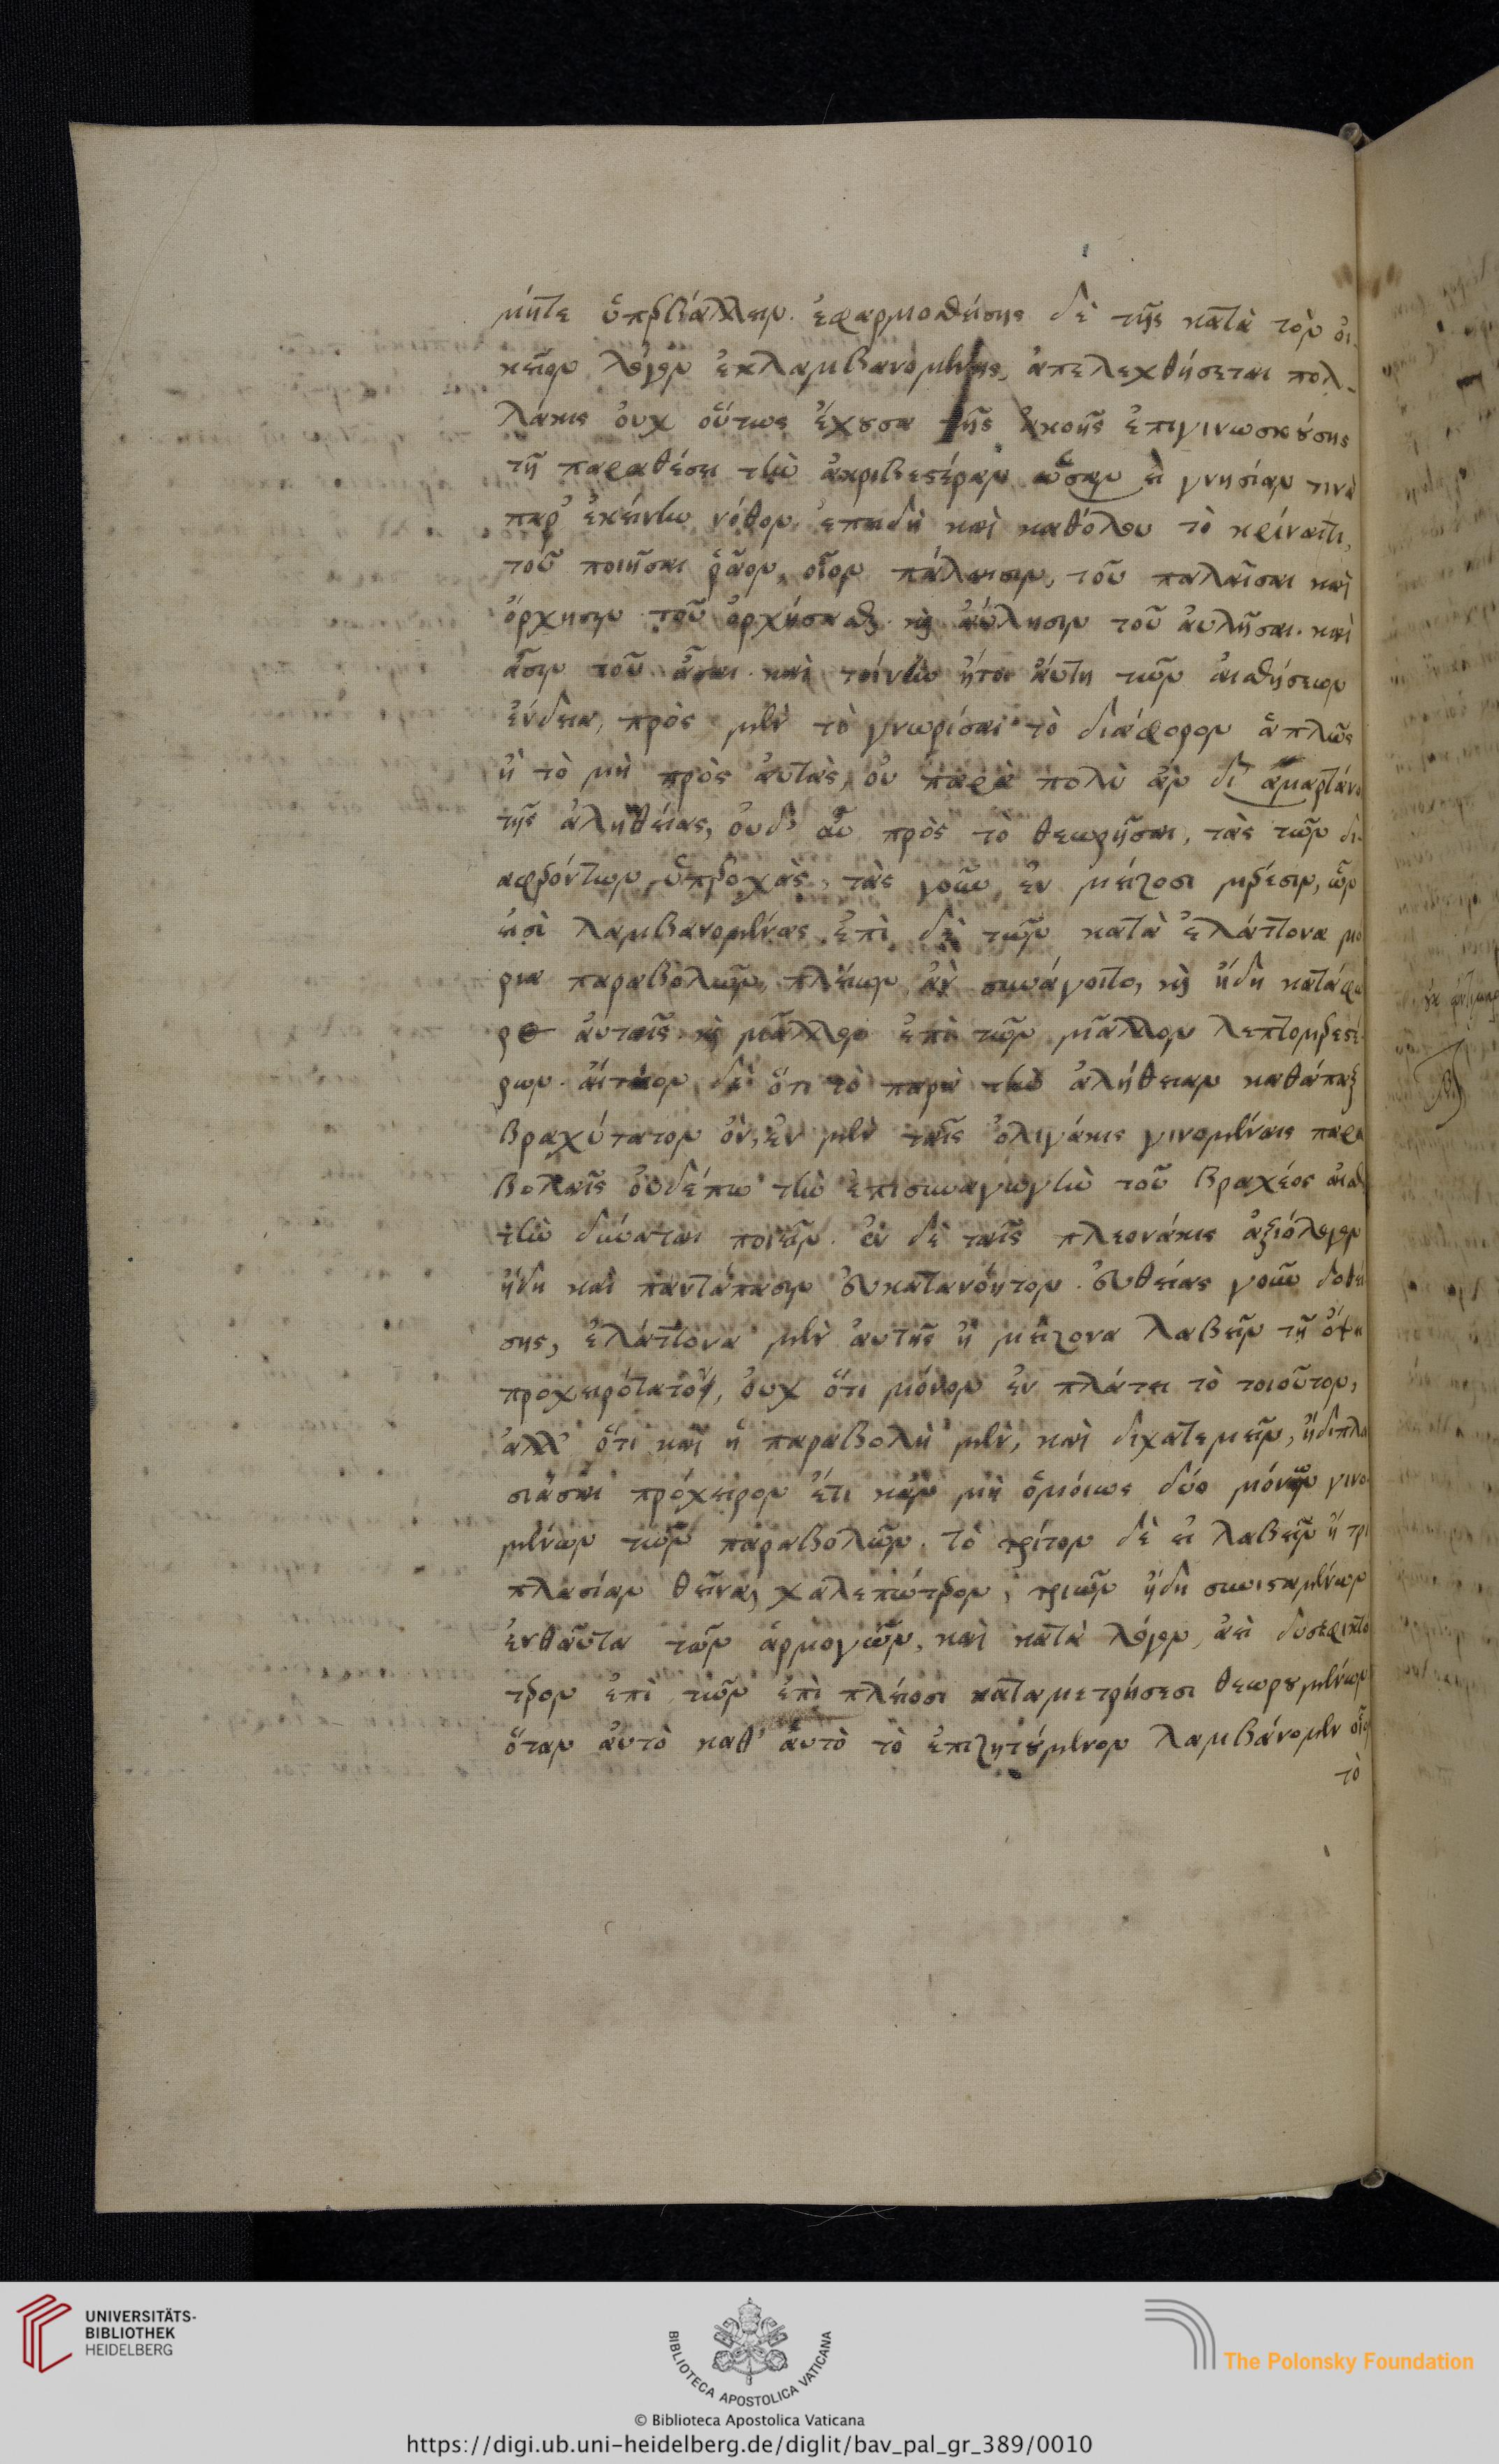 μήτε ὑπερβάλλειν. ἐφαρμοσθείσης δὲ τῆς κατὰ τὸν οἰ-
κεῖον λόγον ἐκλαμβανομένης, ἀπελεχθήσεται πολ-
λάκις οὐχ οὕτως ἔχουσα τῆς ἀκοῆς ἐπιγινωσκούσης
τῇ παραθέσει τὴν ἀκριβεστέραν οὖσαν εἰ γνησίαν τινὰ
παρ' ἐκείνην νόθον. ἐπειδὴ καὶ καθόλου τὸ κρίναί τι,
τοῦ ποιῆσαι ῥᾷον, οἷον πάλαισιν, τοῦ παλαῖσαι καὶ
ὄρχησιν τοῦ ὀρχήσασθαι. καὶ αὔλησιν τοῦ αὐλῆσαι. καὶ
ᾆσιν τοῦ ᾆσαι. καὶ τοίνυν ἤτοι αὕτη τῶν αἰσθήσεων
ἔνδεια, πρὸς μὲν τὸ γνωρίσαι τὸ διάφορον ἁπλῶς
ἢ τὸ μὴ πρὸς αὐτὰς, οὐ παρὰ πολὺ ἂν δι' ἁμαρτάνοι
τῆς ἀληθείας, οὐδ' αὖ πρὸς τὸ θεωρῆσαι, τὰς τῶν δι-
αφερόντων ὑπεροχὰς, τάς γοῦν ἐν μείζοσι μέρεσιν, ὧν
εἰσὶ λαμβανομένας. ἐπὶ δὲ τῶν κατὰ ἐλάττονα μο
ρια παραβολῶν, πλείων ἂν συνάγοιτο, καὶ ἤδη κατάφω
ρος αὐταῖς. καὶ μᾶλλον ἐπὶ τῶν μᾶλλον λεπτομερεστέ-
ρων. αἴτιον δὲ ὅτι τὸ παρὰ τὴν ἀλήθειαν καθάπαξ
βραχύτατον ὄν, ἐν μὲν ταῖς ὀλιγάκις γινομέναις παρα
βολαῖς οὐδέπω τὴν ἐπισυναγωγὴν τοῦ βραχέος αἰσθη
τὴν δύναται ποιεῖν. ἐν δὲ ταῖς πλεονάκις ἀξιόλογον
ἤδη καὶ παντάπασιν εὐκατανόητον. εὐθείας γοῦν δοθεί
σης, ἐλάττονα μὲν αὐτῆς ἢ μείζονα λαβεῖν τῇ ὄψει
προχειρότατον, οὐχ ὅτι μόνον ἐν πλάτει τὸ τοιοῦτον,
ἀλλ' ὅτι καὶ ἡ παραβολὴ μὲν, καὶ δίχα τεμεῖν, ἢ διπλα
σιάσαι πρόχειρον ἔτι κἂν μὴ ὁμοίως δύο μόνων γινο
μένων τῶν παραβολῶν. τὸ τρίτον δὲ εἰ λαβεῖν ἢ τρι
πλασίαν θεῖναι, χαλεπώτερον, τριῶν ἤδη συνισταμένων
ἐνθαῦτα τῶν ἁρμογῶν, καὶ κατὰ λόγον, ἀεὶ δυσεριστο
τερον ἐπὶ τῶν ἐπὶ πλείοσι καταμετρήσεσι θεωρουμένων
ὅταν αὐτὸ καθ' αὑτὸ τὸ ἐπιζητούμενον λαμβάνομεν οἷον
τὸ
UNIVERSITÄTS-
BIBLIOTHEK
HEIDELBERG
BIBLIOTECA APOSTOLICA VATICANA
The Polonsky Foundation
© Biblioteca Apostolica Vaticana
https://digi.ub.uni-heidelberg.de/diglit/bav_pal_gr_389/0010